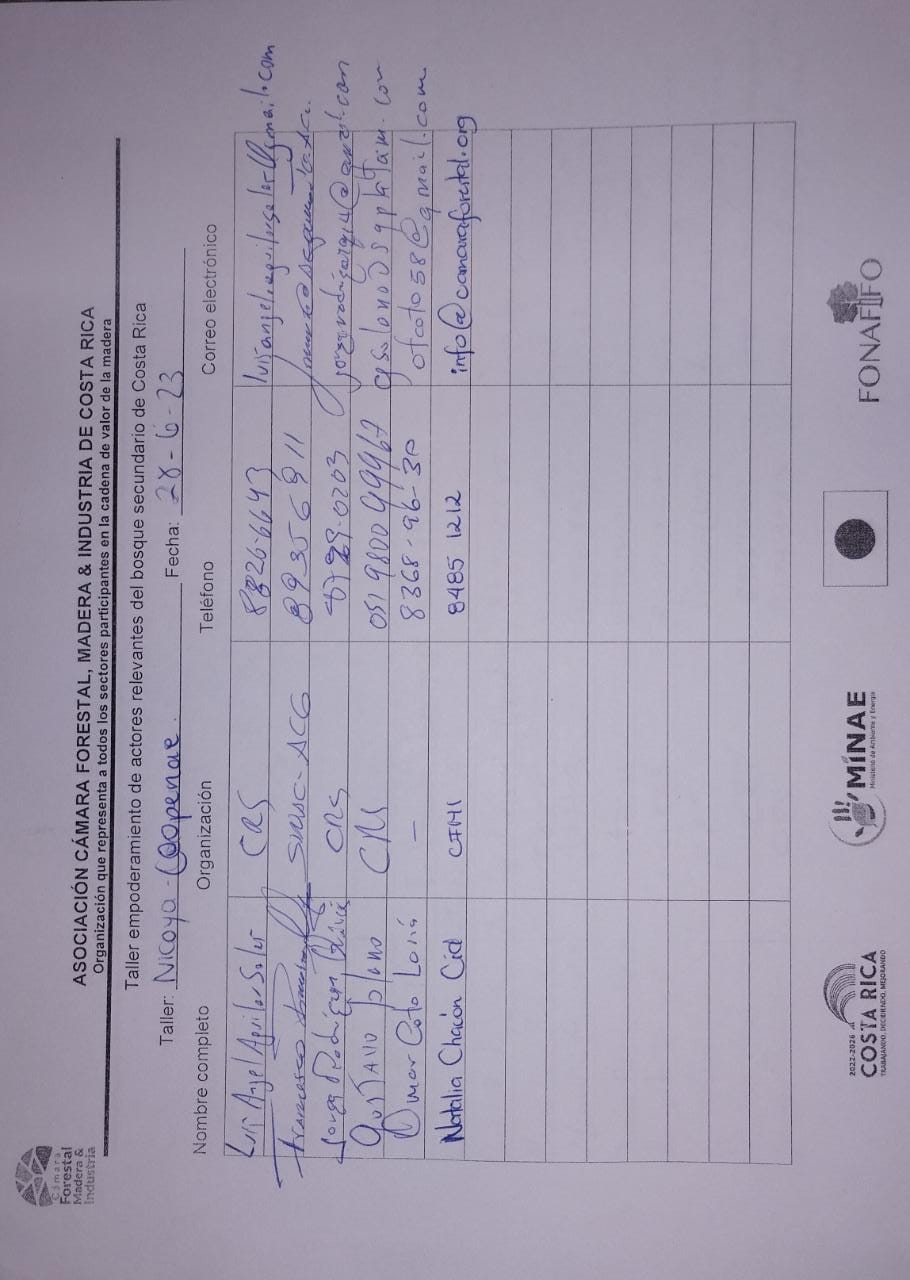 Cámara
Forestal
Madera &
Industria
ASOCIACIÓN CÁMARA FORESTAL, MADERA & INDUSTRIA DE COSTA RICA
Organización que representa a todos los sectores participantes en la cadena de valor de la madera
Taller empoderamiento de actores relevantes del bosque secundario de Costa Rica
Taller: Nicoya - Coopenae. Fecha: 28-6-23
Nombre completo Organización Teléfono Correo electrónico
Luis Angel Aguilar Soler CRS 8826-6643
Francesco 89356911
Jorge Rodríguez CRS
Gustavo Solano
Omar Coto Loria — 8368-96-30 ofcoto58@gmail.com
Natalia Chacón Cid CFMI 8485 1212 info@camaraforestal.org
2022-2026
COSTA RICA
TRABAJANDO, DECIDIENDO, MEJORANDO
MINAE
Ministerio de Ambiente y Energía
FONAFIFO